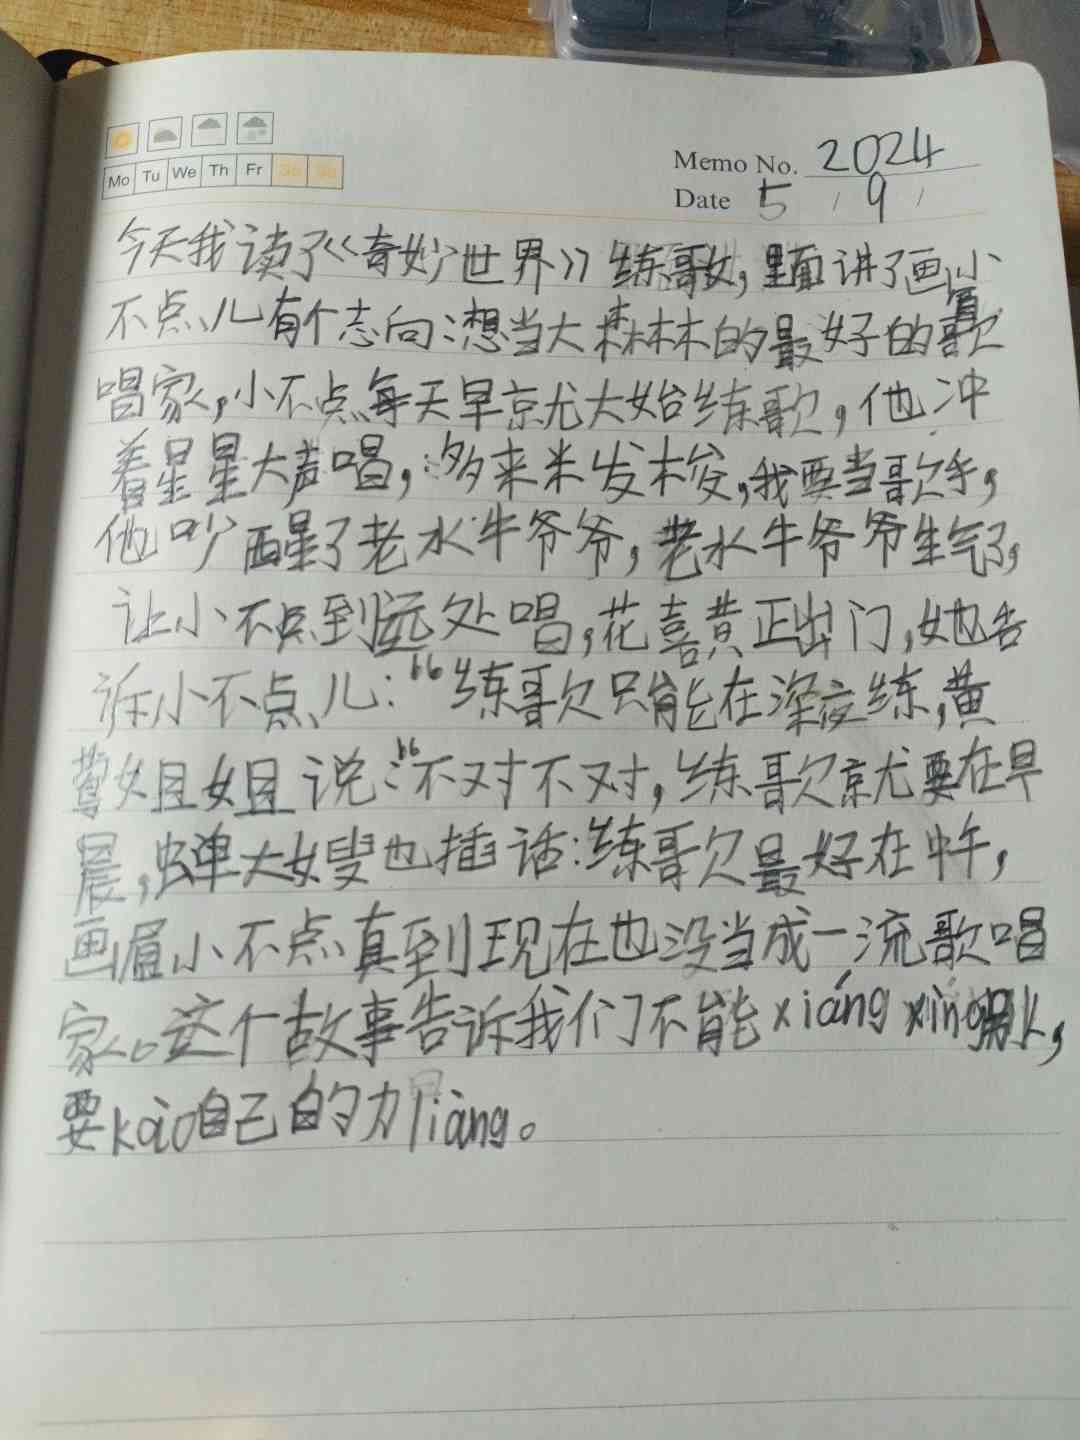 Mo Tu We Th Fr Sa Su
Memo No. 2024
Date 5 / 9 /
今天我读了《奇妙世界》练歌,里面讲了画小
眉
不点儿有个志向:想当大森林的最好的歌
唱家,小不点每天早京尤大始练歌,他冲
着星星大声唱,:多来米发梭,我要当歌手,
他吵醒了老水牛爷爷,老水牛爷爷生气了,
让小不点到远处唱,花喜黄正出门,她告
诉小不点儿:“练歌只能在深夜练,黄
莺姐姐说:“不对不对,练歌就要在早
晨,蝉大嫂也插话:练歌最好在中午,
画眉小不点真到现在也没当成一流歌唱
家。这个故事告诉我们不能xiāng xìn别人,
要kào自己的力liàng。